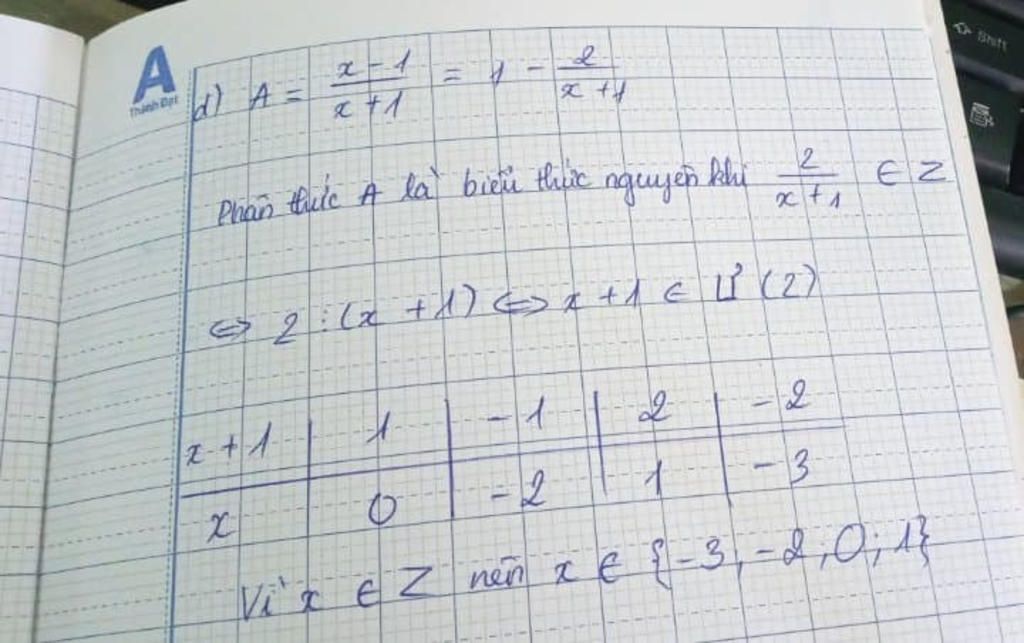 A
Thành Đạt
d) A = \frac{x-1}{x+1} = 1 - \frac{2}{x+1}
Phân thức A là biểu thức nguyên khi \frac{2}{x+1} ∈ Z
⇔ 2 ⋮ (x + 1) ⇔ x + 1 ∈ Ư (2)
x + 1 | 1 | -1 | 2 | -2
x | 0 | -2 | 1 | -3
Vì x ∈ Z nên x ∈ {-3, -2; 0; 1}
Shift